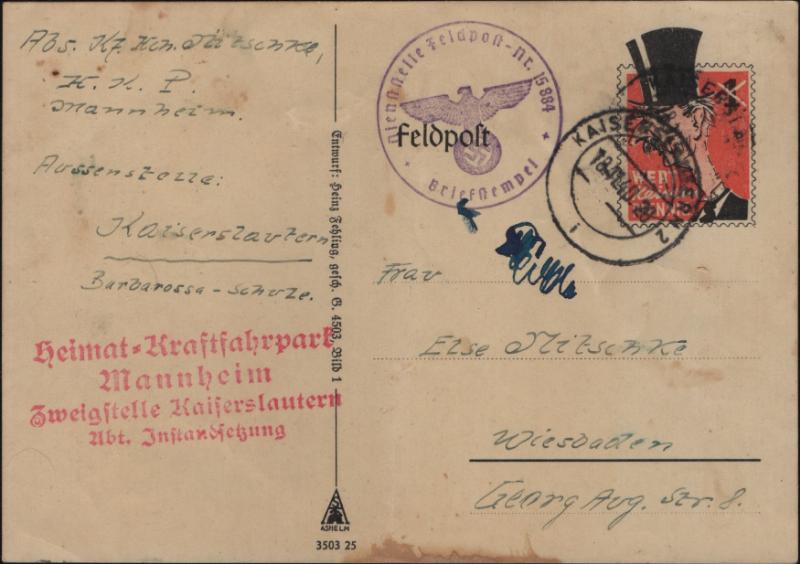 Abs. Kf. Hm. Nitschke,
H. K. P.
Mannheim.
Aussenstelle:
Kaiserslautern
Barbarossa-Schule.
Heimat-Kraftfahrpark
Mannheim
Zweigstelle Kaiserslautern
Abt. Instandsetzung
Entwurf: Heinz Fehling, gesch. G. 4503, Bild 1
ASHELM
3503 25
Dienststelle Feldpost-Nr. 15884
Feldpost
Briefstempel
KAISERSLAUTERN
2
WER
Frau
Else Nitschke
Wiesbaden
Georg Aug. Str. 8.